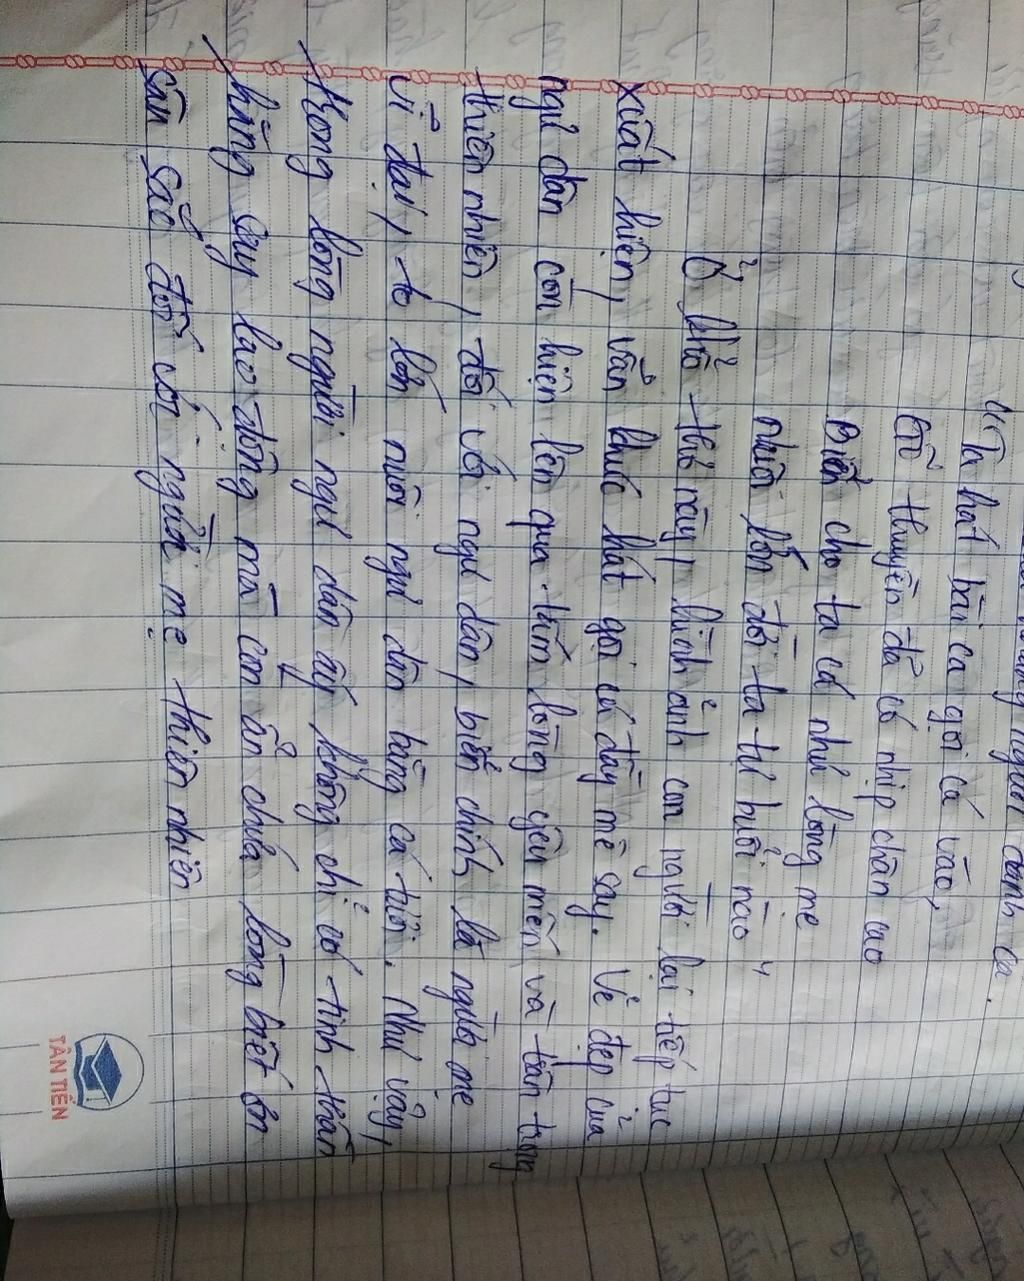 đánh cá.
"Ta hát bài ca gọi cá vào,
Gõ thuyền đã có nhịp chăn cao
Biển cho ta cá như lòng mẹ
nuôi lớn đời ta tự buổi nào"
Ở khổ thơ này, hình ảnh con người lại tiếp tục
xuất hiện, vẫn khúc hát gọi cá đầy mê say. Vẻ đẹp của
ngư dân còn hiện lên qua tấm lòng yêu mến và trân trọng
thiên nhiên, đối với ngư dân, biển chính là người mẹ
vĩ đại, to lớn nuôi ngư dân bằng cá tôi. Như vậy,
trong lòng người ngư dân ấy không chỉ có tinh thần
hăng say lao động mà còn ẩn chứa lòng biết ơn
sâu sắc đối với người mẹ thiên nhiên
TÂN TIẾN